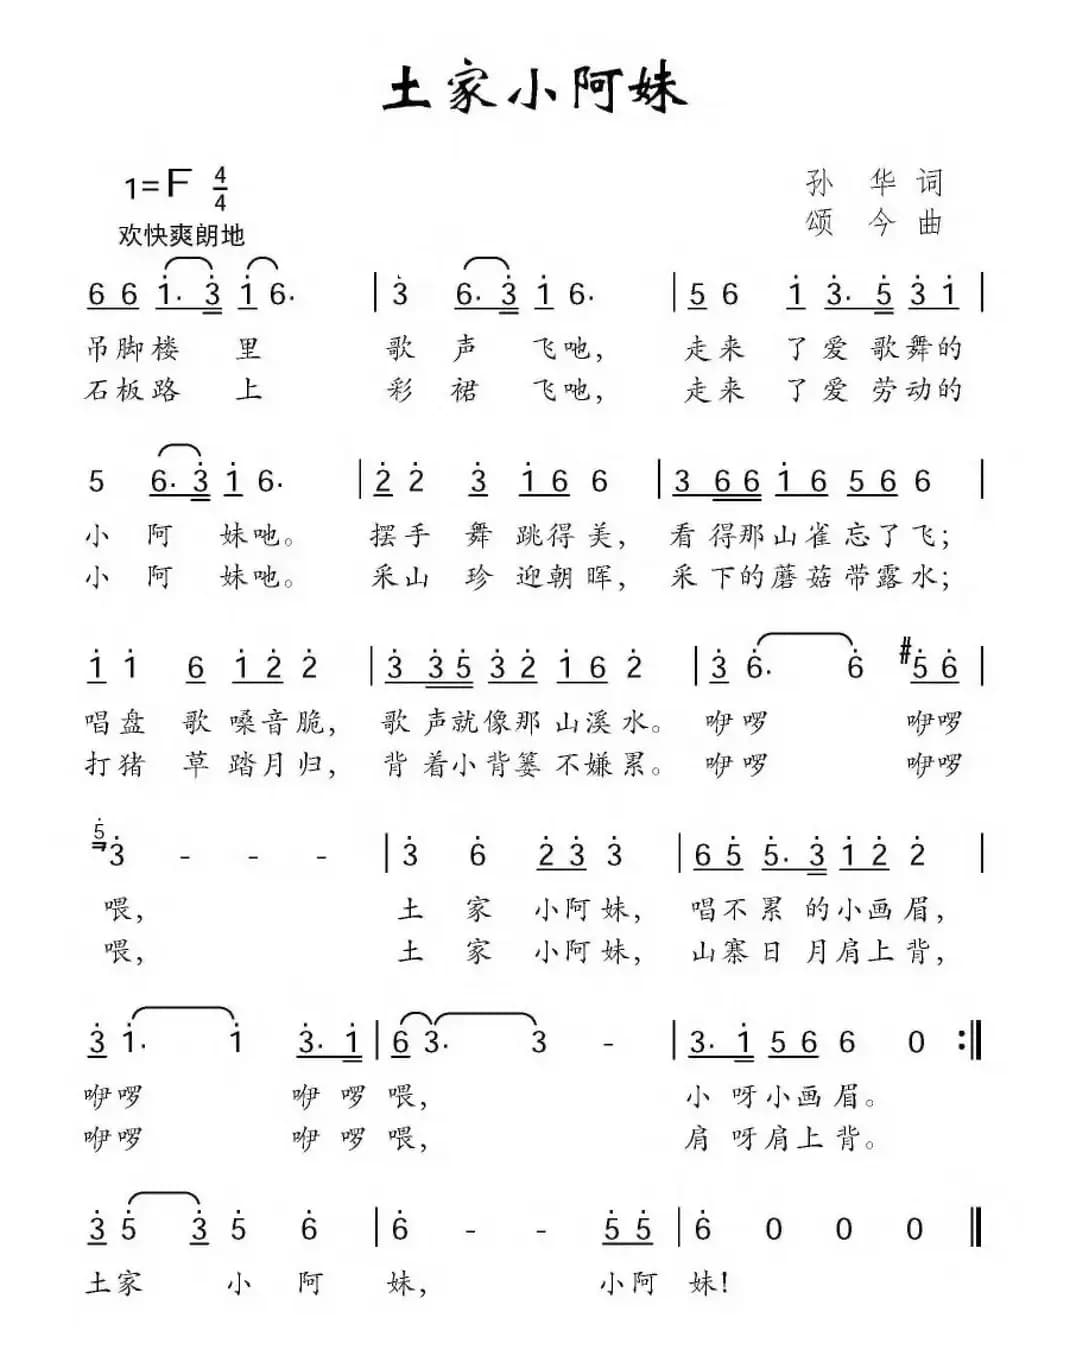 土家小阿妹
1=F 4/4
孙 华 词
颂 今 曲
欢快爽朗地
6 6 1̇. 3̇ 1̇ 6. | 3̇ 6. 3̇ 1̇ 6. | 5 6 1̇ 3̇. 5̇ 3̇ 1̇ |
吊脚楼 里 歌 声 飞吔, 走来 了爱 歌舞的
石板路 上 彩 裙 飞吔, 走来 了爱 劳动的
5 6. 3̇ 1̇ 6. | 2̇ 2̇ 3̇ 1̇ 6 6 | 3 6 6 1̇ 6 5 6 6 |
小 阿 妹吔。 摆手 舞 跳得美, 看得那山雀忘了飞;
小 阿 妹吔。 采山 珍 迎朝晖, 采下的蘑菇带露水;
1̇ 1̇ 6 1̇ 2̇ 2̇ | 3̇ 3̇ 5̇ 3̇ 2̇ 1̇ 6 2̇ | 3̇ 6̇. 6̇ #5̇ 6̇ |
唱盘 歌 嗓音脆, 歌声就像那 山溪水。 咿啰 咿啰
打猪 草 踏月归, 背着小背篓 不嫌累。 咿啰 咿啰
5̇ 3̇ - - - | 3̇ 6̇ 2̇ 3̇ 3̇ | 6 5̇ 5̇. 3̇ 1̇ 2̇ 2̇ |
喂, 土 家 小阿妹, 唱不累 的小画眉,
喂, 土 家 小阿妹, 山寨日 月肩上背,
3̇ 1̇. 1̇ 3̇. 1̇ | 6 3. 3 - | 3. 1̇ 5 6 6 0 :‖
咿啰 咿 啰 喂, 小 呀小画眉。
咿啰 咿 啰 喂, 肩 呀肩上背。
3̇ 5̇ 3̇ 5̇ 6̇ | 6̇ - - 5̇ 5̇ | 6̇ 0 0 0 ‖
土家 小 阿 妹, 小阿 妹!